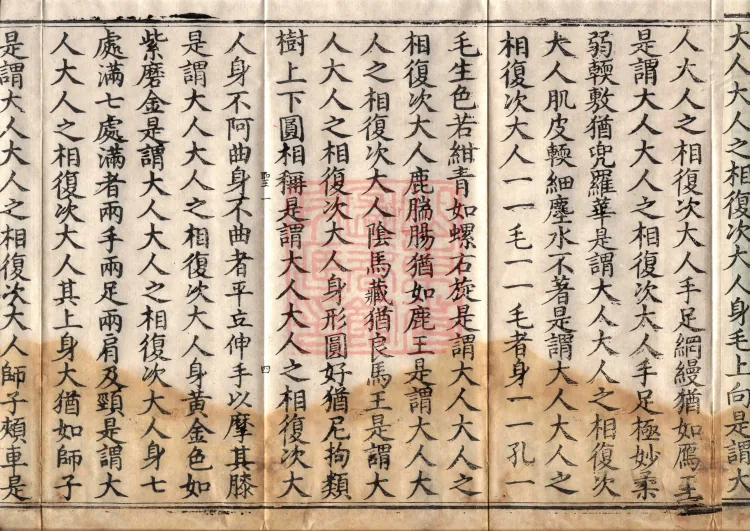 大人大人之相復次大人身毛上向是謂大
人大人之相復次大人手足網縵猶如鴈王
是謂大人大人之相復次大人手足極妙柔
弱輭敷猶兜羅華是謂大人大人之相復次
大人肌皮輭細塵水不著是謂大人大人之
相復次大人一一毛一一毛者身一一孔一
毛生色若紺青如螺右旋是謂大人大人之
相復次大人鹿腨腸猶如鹿王是謂大人大
人之相復次大人陰馬藏猶良馬王是謂大
人大人之相復次大人身形圓好猶尼拘類
樹上下圓相稱是謂大人大人之相復次大
聖一 四
人身不阿曲身不曲者平立伸手以摩其膝
是謂大人大人之相復次大人身黃金色如
紫磨金是謂大人大人之相復次大人身七
處滿七處滿者兩手兩足兩肩及頸是謂大
人大人之相復次大人其上身大猶如師子
是謂大人大人之相復次大人師子頰車是